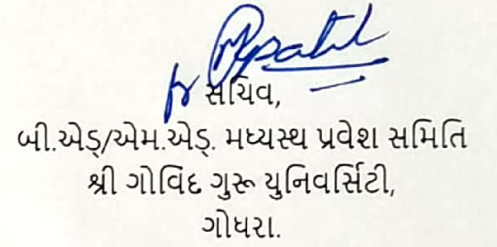 સચિવ,
બી.એડ્/એમ.એડ્. મધ્યસ્થ પ્રવેશ સમિતિ
શ્રી ગોવિંદ ગુરુ યુનિવર્સિટી,
ગોધરા.